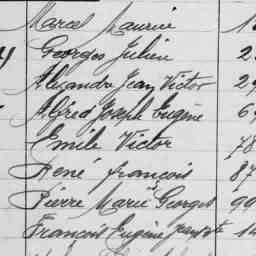 Marcel Maurice 1
Georges Julien 2
Alexandre Jean Victor 29
Alfred Joseph Eugène 6
Emile Victor 78
René françois 87
Pierre Marie Georges 99
François Eugène 14